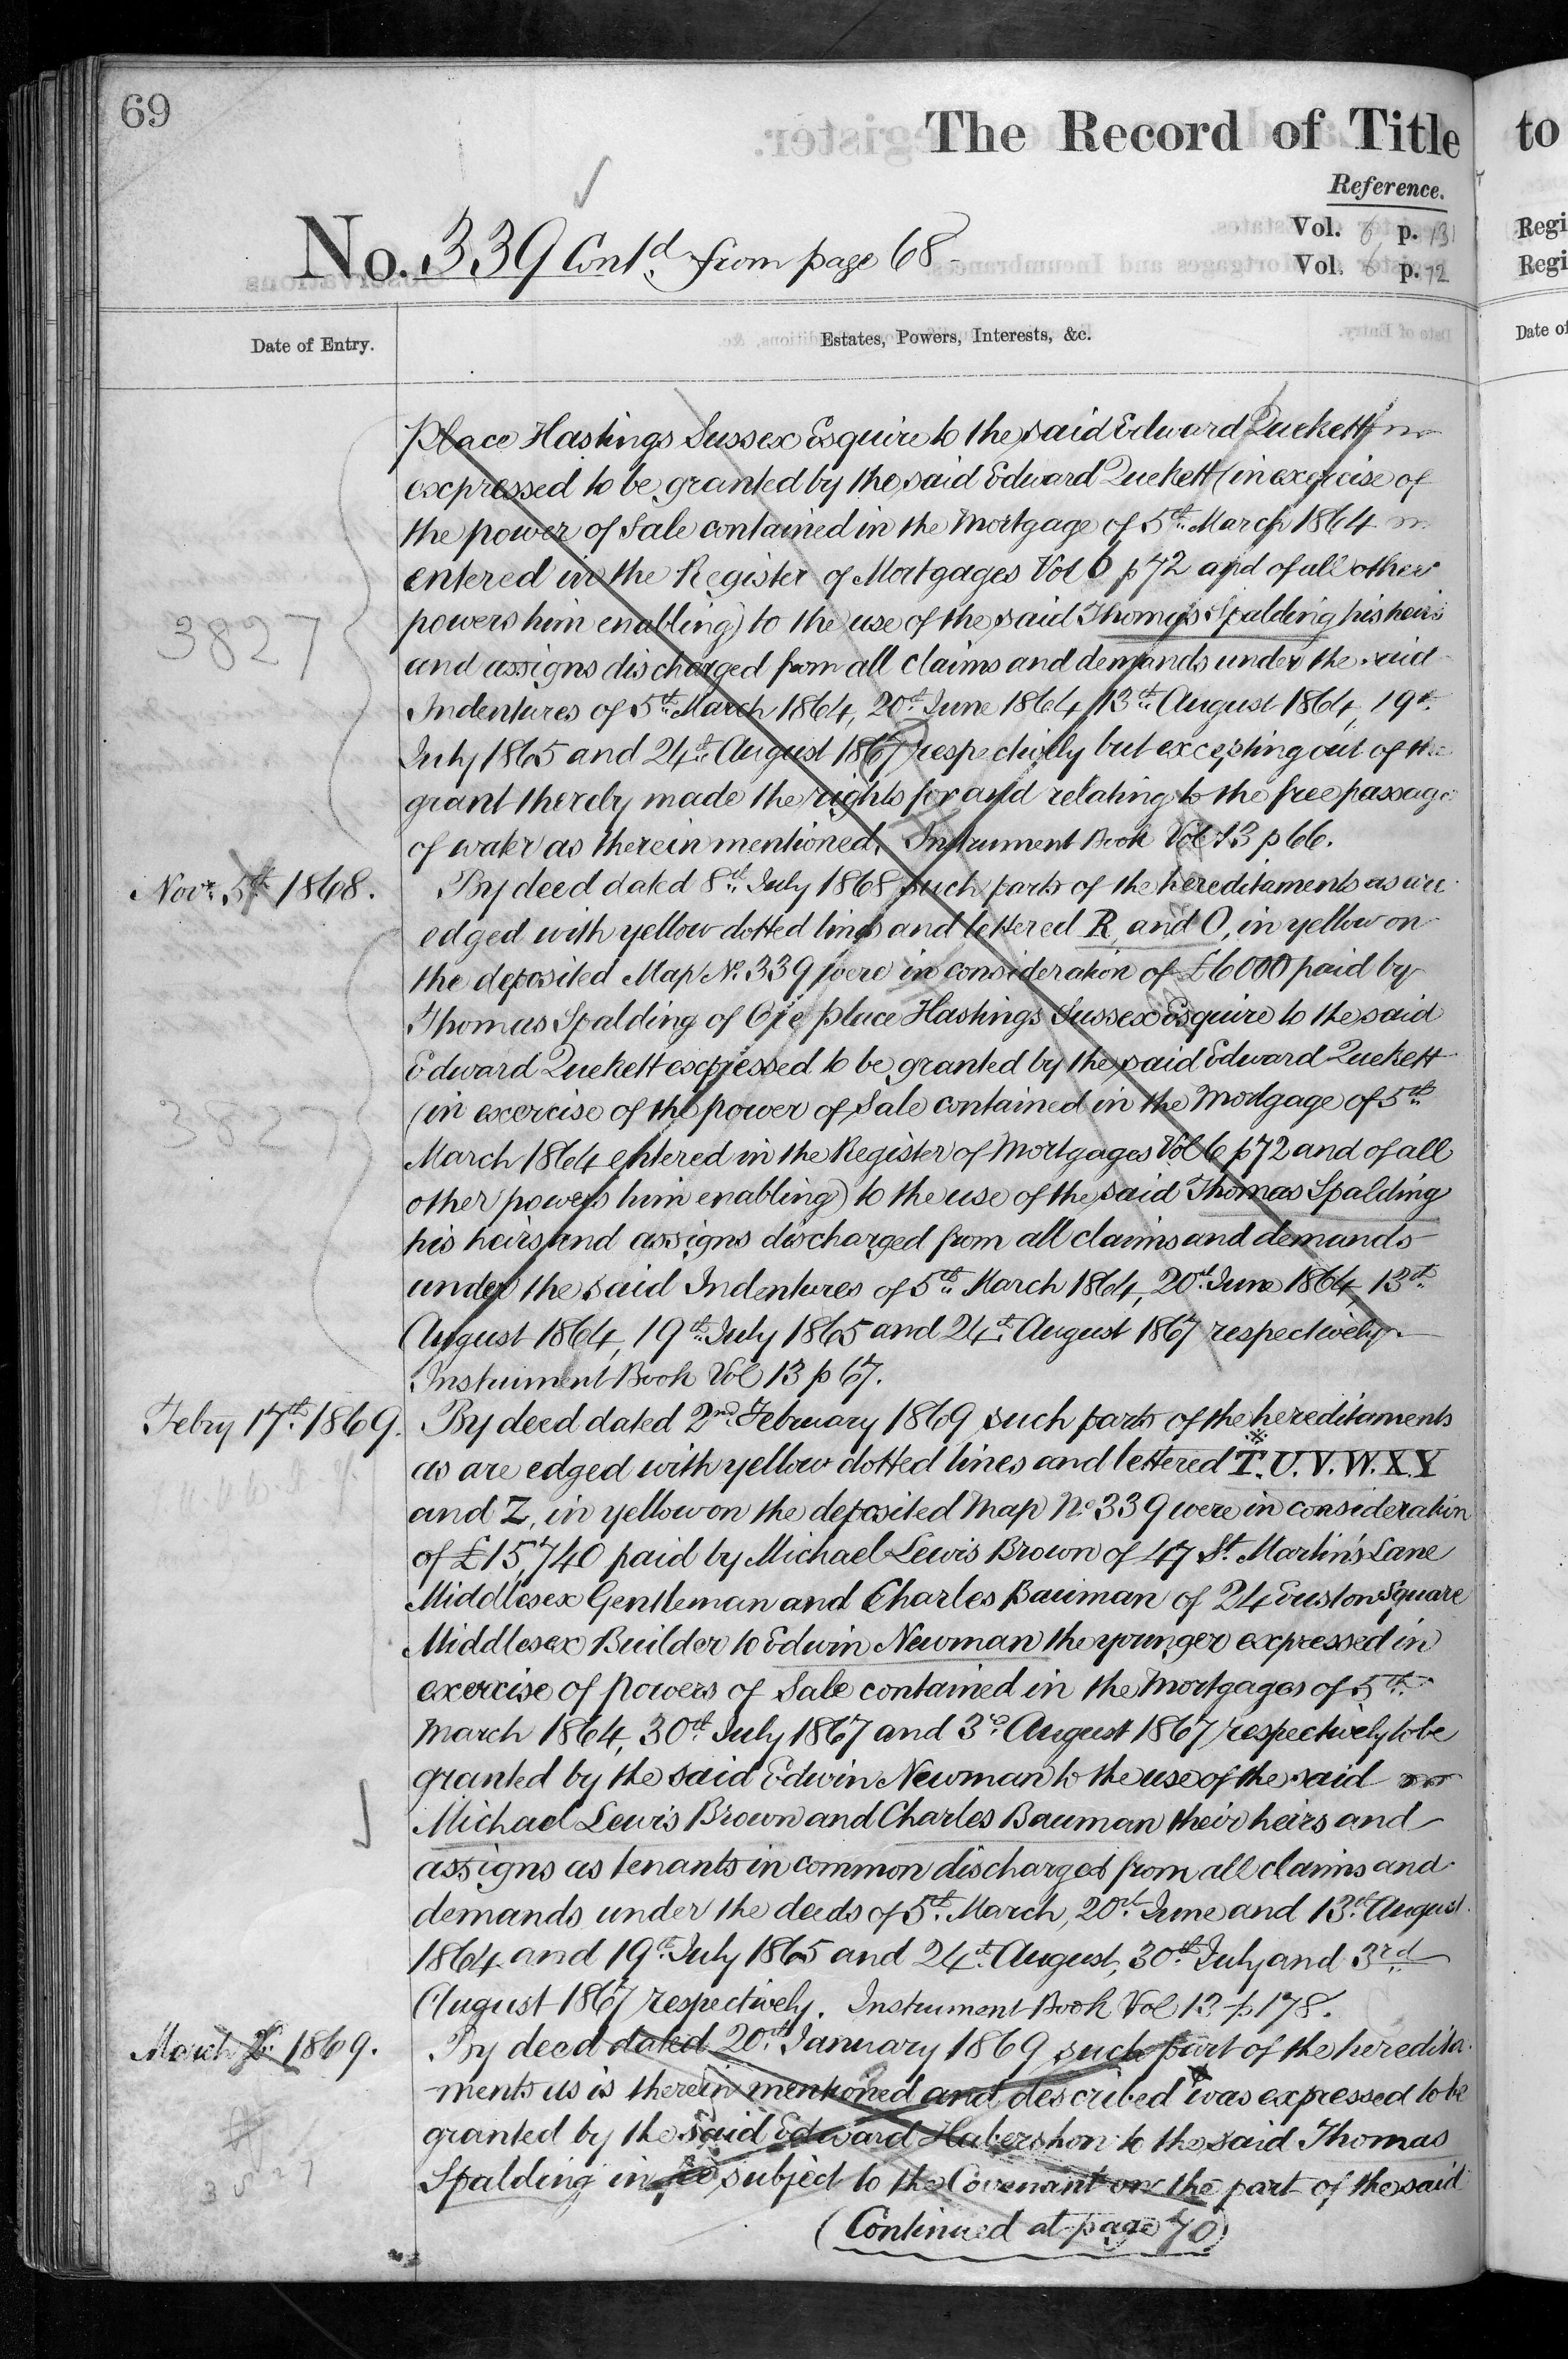 69
The Record of Title
Reference.
No. 339 Contd. from page 68
Vol. 6 p. 131
Vol. 6 p. 72
Date of Entry.
Estates, Powers, Interests, &c.
Place Hastings Sussex Esquire to the said Edward Quekett
expressed to be granted by the said Edward Quekett (in exercise of
the power of Sale contained in the Mortgage of 5th. March 1864
entered in the Register of Mortgages Vol 6 p 72 and of all other
powers him enabling) to the use of the said Thomas Spalding his heirs
3827
and assigns discharged from all claims and demands under the said
Indentures of 5th. March 1864, 20th. June 1864, 13th. August 1864, 19th.
July 1865 and 24th. August 1867 respectively but excepting out of the
grant thereby made the rights for and relating to the free passage
of water as therein mentioned. Instrument Book Vol 13 p 66.
Novr. 5th 1868.
By deed dated 8th. July 1868 such parts of the hereditaments as are
edged with yellow dotted lines and lettered R, and O, in yellow on
the deposited Map No. 339 were in consideration of £6000 paid by
Thomas Spalding of Ore place Hastings Sussex Esquire to the said
Edward Quekett expressed to be granted by the said Edward Quekett
(in exercise of the power of Sale contained in the Mortgage of 5th.
3827
March 1864 entered in the Register of Mortgages Vol 6 p 72 and of all
other powers him enabling) to the use of the said Thomas Spalding
his heirs and assigns discharged from all claims and demands
under the said Indentures of 5th. March 1864, 20th. June 1864, 13th.
August 1864, 19th. July 1865 and 24th. August 1867 respectively
Instrument Book Vol 13 p 67.
Febry 17th. 1869.
By deed dated 2nd. February 1869 such parts of the hereditaments
as are edged with yellow dotted lines and lettered T. U. V. W. X. Y
and Z, in yellow on the deposited Map No 339 were in consideration
of £15,740 paid by Michael Lewis Brown of 47 St. Martin's Lane
Middlesex Gentleman and Charles Bauman of 24 Euston Square
Middlesex Builder to Edwin Newman the younger expressed in
exercise of powers of Sale contained in the Mortgages of 5th.
March 1864, 30th. July 1867 and 3rd. August 1867 respectively to be
granted by the said Edwin Newman to the use of the said
Michael Lewis Brown and Charles Bauman their heirs and
assigns as tenants in common discharged from all claims and
demands under the deeds of 5th. March, 20th. June and 13th. August
1864 and 19th. July 1865 and 24th. August, 30th. July and 3rd.
August 1867 respectively. Instrument Book Vol 13 p 178.
March 1869.
By deed dated 20th. January 1869 such part of the heredita-
-ments as is therein mentioned and described was expressed to be
granted by the said Edward Habershon to the said Thomas
Spalding in fee subject to the Covenant on the part of the said
(Continued at page 70)
to
Regi
Regi
Date of